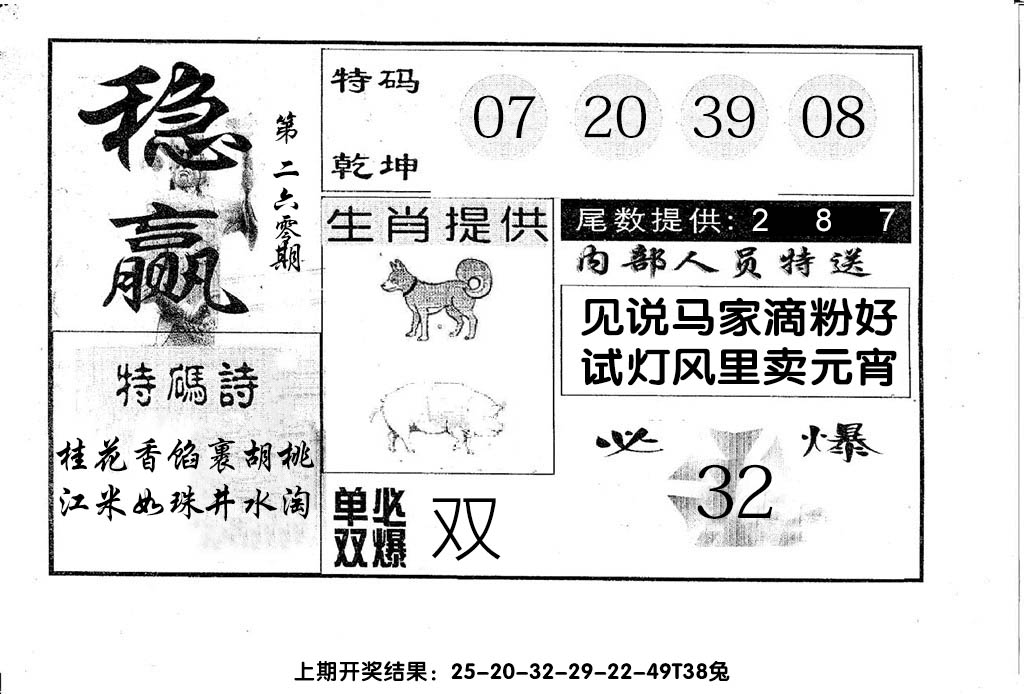 稳赢
第二六零期
特码
乾坤
07 20 39 08
生肖提供
尾数提供: 2 8 7
内部人员特送
见说马家滴粉好
试灯风里卖元宵
特碼詩
桂花香馅裹胡桃
江米如珠井水淘
单双必爆
双
必爆
32
上期开奖结果：25-20-32-29-22-49T38兔